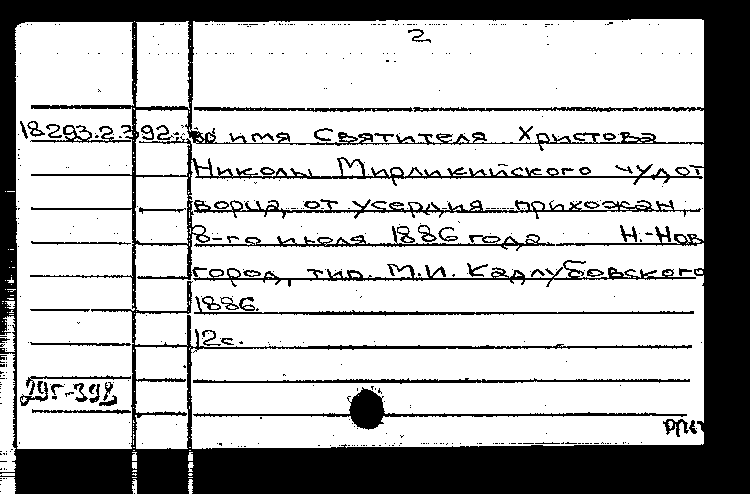 2
18293.2.392. во имя Святителя Христова
Николы Мирликийского чудот
ворца, от усердия прихожан,
8-го июля 1886 года Н.-Нов
город, тип. М.И. Кадлубовского
1886.
12с.
29г-392